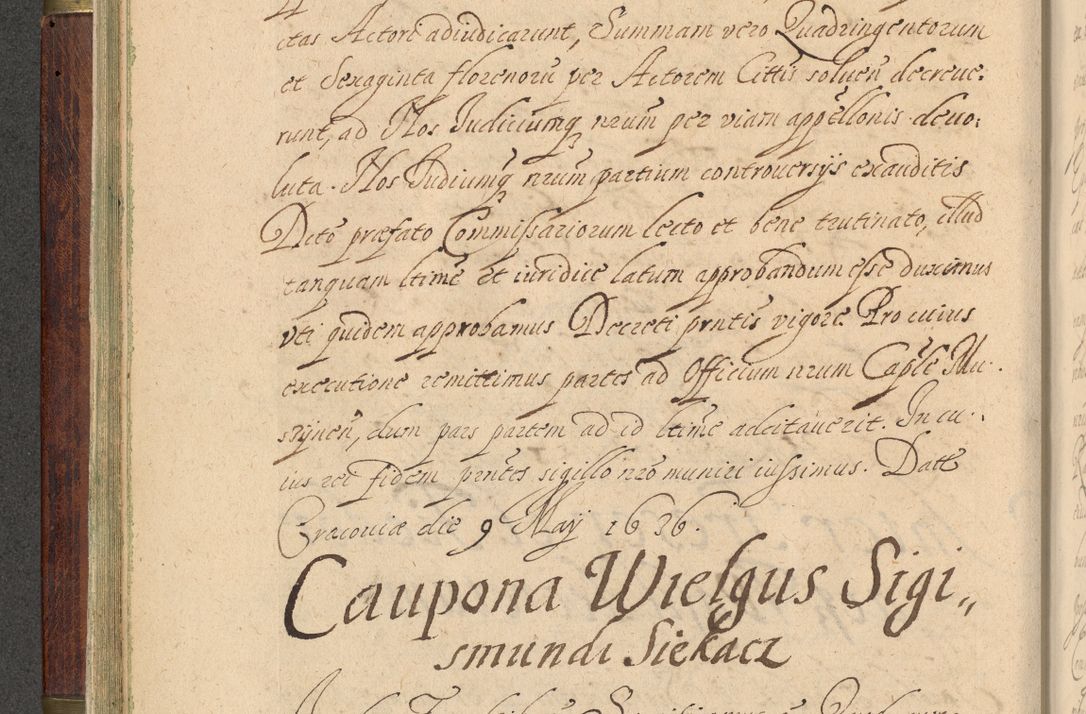 ctas Actore adiudicarunt, Summam vero Quadringentorum
et Sexaginta florenorū per Actorem Cittis soluen̄ decreue:
runt, ad Nos Judiciumq nrum per viam appellonis deuo:
luta. Nos Judiumq nrum partium controuersijs exauditis
Dcto præfato Commissariorum lecto et bene trutinato, illud
tanquam ltime et iuridice latum approbandum esse duximus
vti quidem approbamus Decreti prntis vigore. Pro cuius
executione remittimus partes ad Officium nrum Caple Mu-
szÿnen̄, dum pars partem ad id ltime adcitauerit. In cu:
ius rei fidem prntes sigillo nro muniri iussimus. Datt
Cracouiæ die 9 Maÿ 1636.
Caupona Wielgus Sigi„
smundi Siekacz